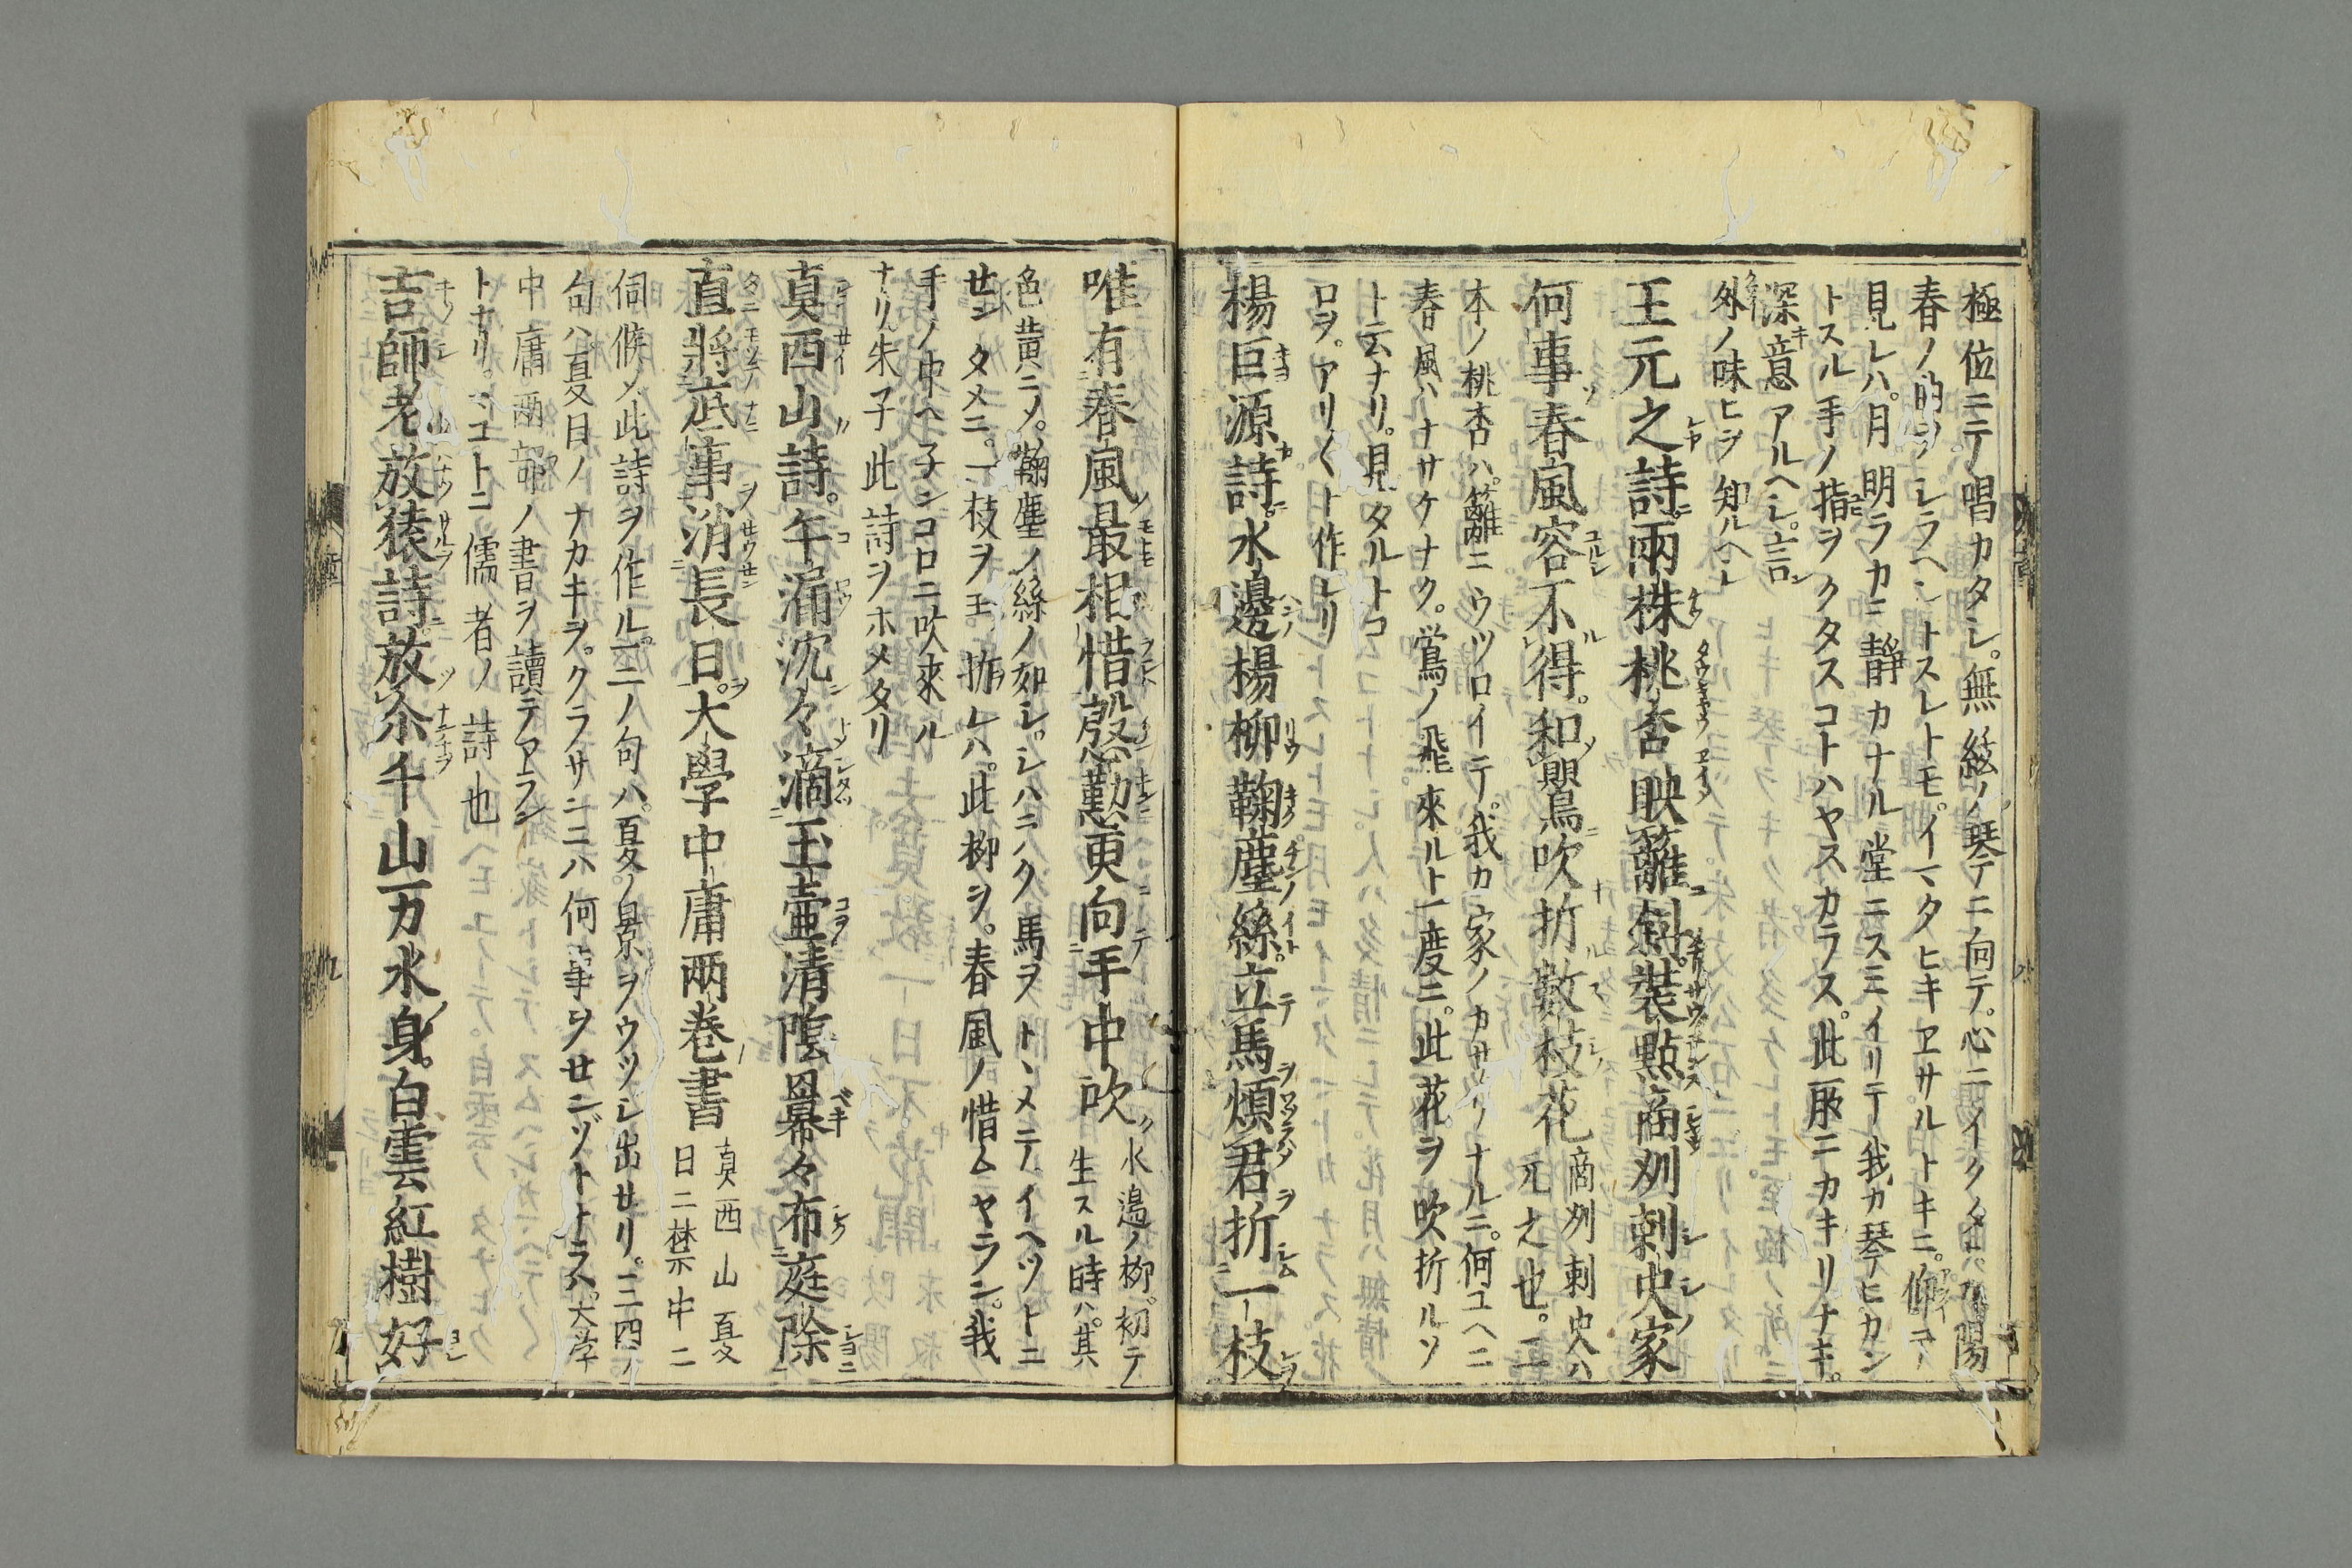 極位ニテ唱カタシ。無絃ノ琴ニ向テ。心ニイクタヒカ陽
春ノ曲ヲシラヘントスレトモ。イマタヒキヱサルトキニ。仰テ
見レハ。月明ラカニ静カナル堂ニスミイリテ我カ琴ヒカン
トスル手ノ指ヲクタスコトハヤスカラス。此服ニカキリナキ。
深キ意アルヘシ。言
外ノ味ヒヲ知ルヘシ
王元之詩兩株桃杏映籬斜。裝點商刕刺史家
何事春風容不得。和鸎吹折數枝花
商刕刺史ハ
元之也。二
本ノ桃杏ハ。籬ニウツロイテ。我カ家ノカサリナルニ。何ユヘニ
春風ハナサケナク。鶯ノ飛來ルト一度ニ。此花ヲ吹折ルソ
ト云ナリ。見タルトコ
ロヲ。アリ〱ト作レリ
楊巨源詩水邊楊柳鞠塵絲。立馬煩君折一枝
唯有春風最相惜慇懃更向手中吹
水邉ノ柳。初テ
生スル時ハ。其
色黄ニメ。鞠塵ノ絲ノ如シ。シハニハク馬ヲトヽメテイヘツトニ
せンタメニ。一枝ヲ玉拆レハ。此柳ヲ。春風ノ惜ムヤラン。我
手ノ中ヘ子ンコロニ吹來ル
ナリ。朱子此詩ヲホメタリ
真西山詩。午漏沈々滴玉壷清陰羃々布庭除
直將底事消長日。大學中庸两巻書
真西山夏
日ニ禁中ニ
伺候メ此詩ヲ作ル。一二ノ句ハ。夏ノ景ヲウツシ出せリ。三四ノ
句ハ夏日ノナカキヲ。クラサンニハ何事ヲせンヅトトラハ。大学
中庸两部ノ書ヲ讀テアラン
トナリ。マコトニ儒者ノ詩也
吉師老放猿詩放尒千山万水身。白雲紅樹好